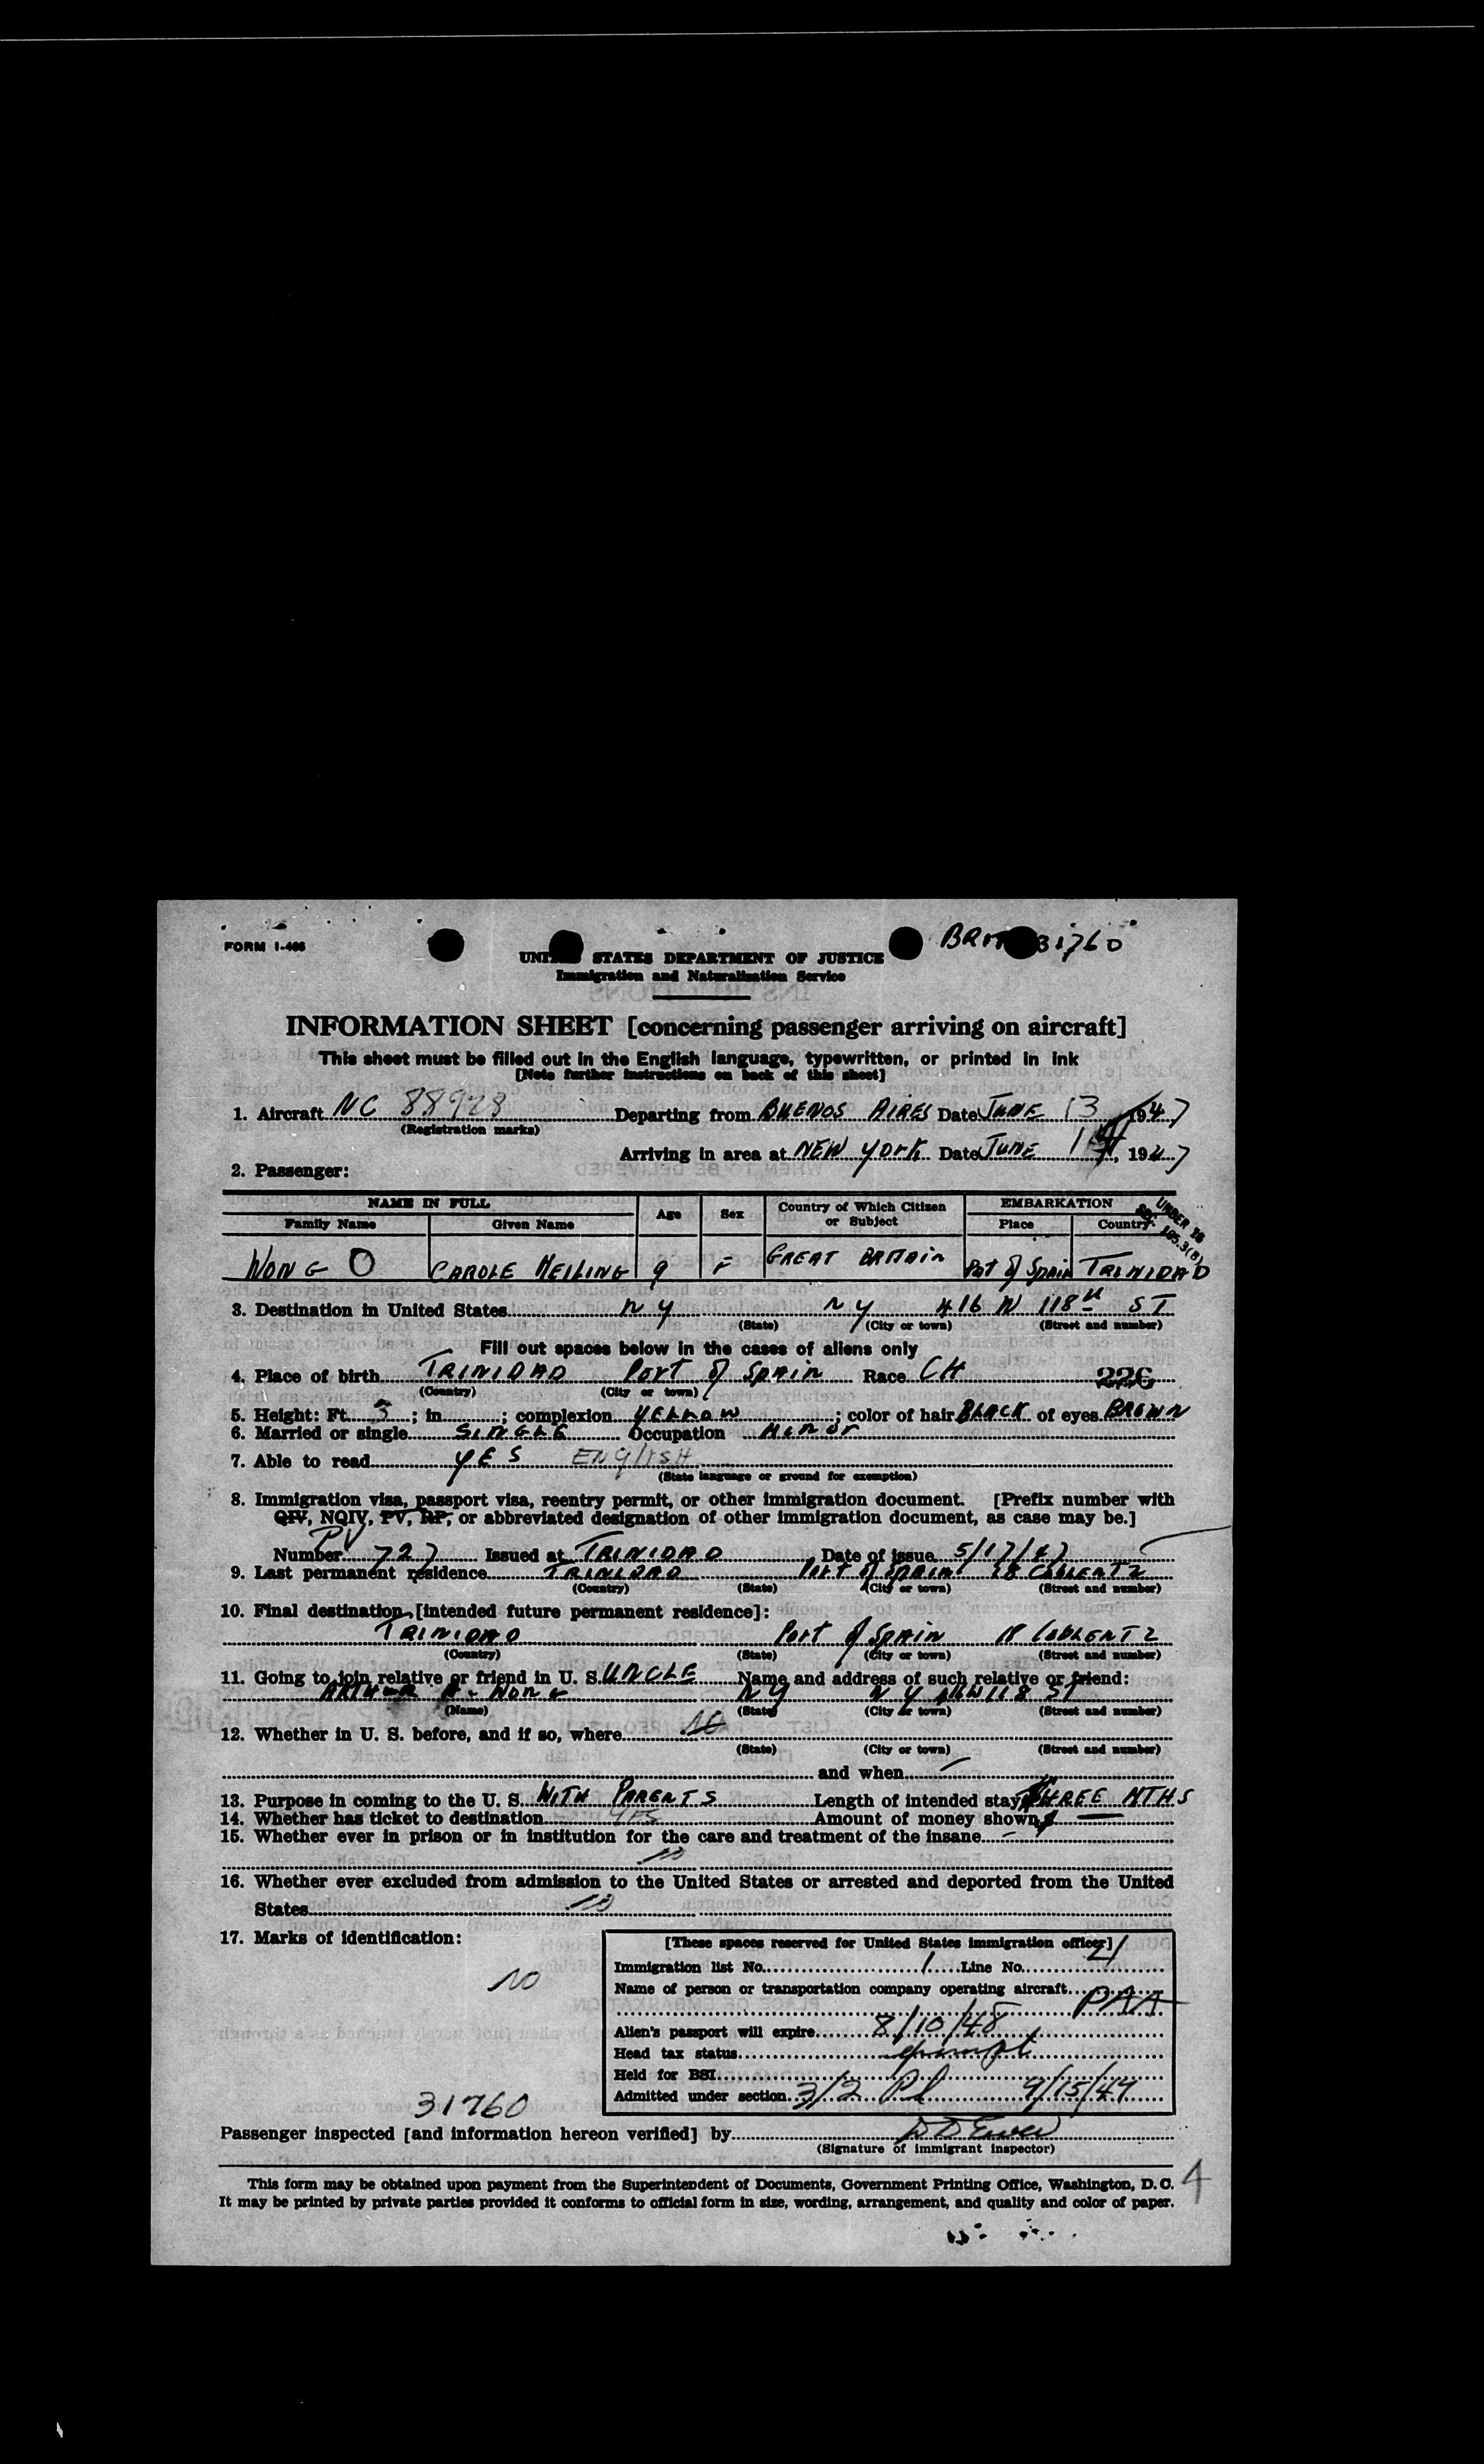 FORM I-466
BRIT 31760
UNITED STATES DEPARTMENT OF JUSTICE
Immigration and Naturalization Service
INFORMATION SHEET [concerning passenger arriving on aircraft]
This sheet must be filled out in the English language, typewritten, or printed in ink
[Note further instructions on back of this sheet]
1. Aircraft NC 88928 Departing from BUENOS AIRES Date JUNE 13, 1947
(Registration marks)
Arriving in area at NEW YORK Date JUNE, 1947
2. Passenger:
NAME IN FULL Age Sex Country of Which Citizen or Subject EMBARKATION
Family Name Given Name Place Country
UNDER 16
SEC. 165.3(B)
WONG O CAROLE MEILING 9 F GREAT BRITAIN Port of Spain TRINIDAD
3. Destination in United States NY NY 416 W 118th ST
(State) (City or town) (Street and number)
Fill out spaces below in the cases of aliens only
4. Place of birth TRINIDAD Port of Spain Race CH 226
(Country) (City or town)
5. Height: Ft. 3; in.; complexion YELLOW; color of hair BLACK of eyes BROWN
6. Married or single SINGLE Occupation MINOR
7. Able to read YES ENGLISH
(State language or ground for exemption)
8. Immigration visa, passport visa, reentry permit, or other immigration document. [Prefix number with
QIV, NQIV, PV, RP, or abbreviated designation of other immigration document, as case may be.]
PV
Number 727 Issued at TRINIDAD Date of issue 5/17/47
9. Last permanent residence TRINIDAD Port of SPAIN 18 COBLENTZ
(Country) (State) (City or town) (Street and number)
10. Final destination [intended future permanent residence]:
TRINIDAD Port of SPAIN 18 COBLENTZ
(Country) (State) (City or town) (Street and number)
11. Going to join relative or friend in U. S. UNCLE Name and address of such relative or friend:
ARTHUR WONG NY NY 416 W 118 ST
(Name) (State) (City or town) (Street and number)
12. Whether in U. S. before, and if so, where NO
(State) (City or town) (Street and number)
and when
13. Purpose in coming to the U. S. WITH PARENTS Length of intended stay THREE MTHS
14. Whether has ticket to destination YES Amount of money shown $
15. Whether ever in prison or in institution for the care and treatment of the insane
NO
16. Whether ever excluded from admission to the United States or arrested and deported from the United
States NO
17. Marks of identification:
NO
[These spaces reserved for United States immigration officer]
Immigration list No. 1 Line No. 21
Name of person or transportation company operating aircraft
PAA
Alien's passport will expire 8/10/48
Head tax status exempt
Held for BSI
Admitted under section 3/2 Pl 9/15/47
31760
Passenger inspected [and information hereon verified] by
(Signature of immigrant inspector)
This form may be obtained upon payment from the Superintendent of Documents, Government Printing Office, Washington, D. C.
It may be printed by private parties provided it conforms to official form in size, wording, arrangement, and quality and color of paper.
4